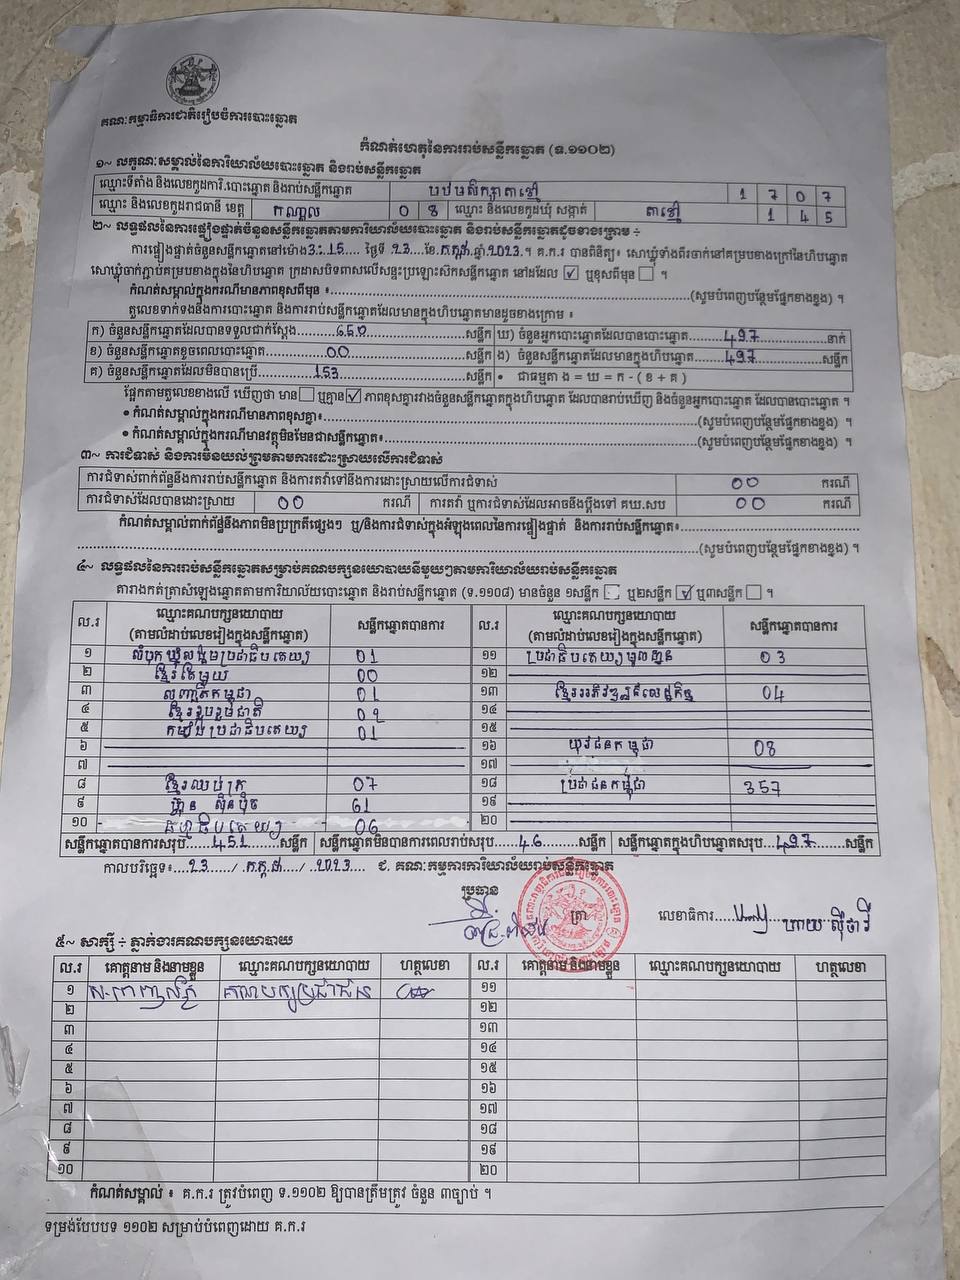 គណៈកម្មាធិការជាតិរៀបចំការបោះឆ្នោត
កំណត់ហេតុនៃការរាប់សន្លឹកឆ្នោត (ទ.១១០២)
១~ លក្ខណៈសម្គាល់នៃការិយាល័យបោះឆ្នោត និងរាប់សន្លឹកឆ្នោត
ឈ្មោះទីតាំង និងលេខកូដការិ.បោះឆ្នោត និងរាប់សន្លឹកឆ្នោត បឋមសិក្សាតាខៅ 1 7 0 7
ឈ្មោះ និងលេខកូដរាជធានី ខេត្ត កណ្តាល 0 8 ឈ្មោះ និងលេខកូដឃុំ សង្កាត់ តាខៅ 1 4 5
២~ លទ្ធផលនៃការផ្ទៀងផ្ទាត់ចំនួនសន្លឹកឆ្នោតតាមការិយាល័យបោះឆ្នោត និងរាប់សន្លឹកឆ្នោតដូចខាងក្រោម ÷
ការផ្ទៀងផ្ទាត់ចំនួនសន្លឹកឆ្នោតនៅម៉ោង 3:15 ថ្ងៃទី 23 ខែ កក្កដា ឆ្នាំ 2023។ គ.ក.រ បានពិនិត្យ៖ សោឃ្លុំទាំងពីរចាក់នៅគម្របខាងក្រៅនៃហិបឆ្នោត
សោឃ្លុំចាក់ភ្ជាប់គម្របខាងក្នុងនៃហិបឆ្នោត ក្រដាសបិទពាសលើសន្ទះប្រឡោះសិកសន្លឹកឆ្នោត នៅដដែល ☑ ឬខុសពីមុន ☐ ។
កំណត់សម្គាល់ក្នុងករណីមានភាពខុសពីមុន ៖ (សូមបំពេញបន្ថែមផ្នែកខាងខ្នង) ។
តួលេខទាក់ទងនឹងការបោះឆ្នោត និងការរាប់សន្លឹកឆ្នោតដែលមានក្នុងហិបឆ្នោតមានដូចខាងក្រោម ៖
ក) ចំនួនសន្លឹកឆ្នោតដែលបានទទួលជាក់ស្តែង 650 សន្លឹក ឃ) ចំនួនអ្នកបោះឆ្នោតដែលបានបោះឆ្នោត 497 នាក់
ខ) ចំនួនសន្លឹកឆ្នោតខូចពេលបោះឆ្នោត 00 សន្លឹក ង) ចំនួនសន្លឹកឆ្នោតដែលមានក្នុងហិបឆ្នោត 497 សន្លឹក
គ) ចំនួនសន្លឹកឆ្នោតដែលមិនបានប្រើ 153 សន្លឹក • ជាធម្មតា ង = ឃ = ក - ( ខ + គ )
ផ្អែកតាមតួលេខខាងលើ ឃើញថា មាន ☐ ឬគ្មាន ☑ ភាពខុសគ្នារវាងចំនួនសន្លឹកឆ្នោតក្នុងហិបឆ្នោត ដែលបានរាប់ឃើញ និងចំនួនអ្នកបោះឆ្នោត ដែលបានបោះឆ្នោត ។
• កំណត់សម្គាល់ក្នុងករណីមានភាពខុសគ្នា៖ (សូមបំពេញបន្ថែមផ្នែកខាងខ្នង) ។
• កំណត់សម្គាល់ក្នុងករណីមានវត្ថុមិនមែនជាសន្លឹកឆ្នោត៖ (សូមបំពេញបន្ថែមផ្នែកខាងខ្នង) ។
៣~ ការជំទាស់ និងការមិនយល់ព្រមតាមការដោះស្រាយលើការជំទាស់
ការជំទាស់ពាក់ព័ន្ធនឹងការរាប់សន្លឹកឆ្នោត និងការតវ៉ាទៅនឹងការដោះស្រាយលើការជំទាស់ 00 ករណី
ការជំទាស់ដែលបានដោះស្រាយ 00 ករណី ការតវ៉ា ឬការជំទាស់ដែលអាចនឹងប្តឹងទៅ គឃ.សប 00 ករណី
កំណត់សម្គាល់ពាក់ព័ន្ធនឹងភាពមិនប្រក្រតីផ្សេងៗ ឬ/និងការជំទាស់ក្នុងអំឡុងពេលនៃការផ្ទៀងផ្ទាត់ និងការរាប់សន្លឹកឆ្នោត៖
(សូមបំពេញបន្ថែមផ្នែកខាងខ្នង) ។
៤~ លទ្ធផលនៃការរាប់សន្លឹកឆ្នោតសម្រាប់គណបក្សនយោបាយនីមួយៗតាមការិយាល័យរាប់សន្លឹកឆ្នោត
តារាងកត់ត្រាសំឡេងឆ្នោតតាមការិយាល័យបោះឆ្នោត និងរាប់សន្លឹកឆ្នោត (ទ.១១០៨) មានចំនួន ១សន្លឹក ☐ ឬ២សន្លឹក ☑ ឬ៣សន្លឹក ☐ ។
ល.រ ឈ្មោះគណបក្សនយោបាយ (តាមលំដាប់លេខរៀងក្នុងសន្លឹកឆ្នោត) សន្លឹកឆ្នោតបានការ ល.រ ឈ្មោះគណបក្សនយោបាយ (តាមលំដាប់លេខរៀងក្នុងសន្លឹកឆ្នោត) សន្លឹកឆ្នោតបានការ
១ សំបុកឃ្មុំសង្គមប្រជាធិបតេយ្យ 01 ១១ ប្រជាធិបតេយ្យមូលដ្ឋាន 03
២ ខ្មែរតែមួយ 00 ១២
៣ សញ្ជាតិកម្ពុជា 01 ១៣ ខ្មែរអភិវឌ្ឍន៍សេដ្ឋកិច្ច 04
៤ ខ្មែររួបរួមជាតិ ១៤
៥ កម្លាំងប្រជាធិបតេយ្យ 01 ១៥
៦ ១៦ យុវជនកម្ពុជា 08
៧ ១៧
៨ ខ្មែរឈប់ក្រ 07 ១៨ ប្រជាជនកម្ពុជា 357
៩ ហ៊្វុនស៊ិនប៉ិច 61 ១៩
១០ ធម្មាធិបតេយ្យ 06 ២០
សន្លឹកឆ្នោតបានការសរុប 451 សន្លឹក សន្លឹកឆ្នោតមិនបានការពេលរាប់សរុប 46 សន្លឹក សន្លឹកឆ្នោតក្នុងហិបឆ្នោតសរុប 497 សន្លឹក
កាលបរិច្ឆេទ៖ 23 / កក្កដា / 2023 ជ. គណៈកម្មការការិយាល័យរាប់សន្លឹកឆ្នោត
ប្រធាន ត្រា លេខាធិការ ហាយ ស៊ីថាវី
៥~ សាក្សី ÷ ភ្នាក់ងារគណបក្សនយោបាយ
ល.រ គោត្តនាម និងនាមខ្លួន ឈ្មោះគណបក្សនយោបាយ ហត្ថលេខា ល.រ គោត្តនាម និងនាមខ្លួន ឈ្មោះគណបក្សនយោបាយ ហត្ថលេខា
១ គណបក្សប្រជាជន ១១
២ ១២
៣ ១៣
៤ ១៤
៥ ១៥
៦ ១៦
៧ ១៧
៨ ១៨
៩ ១៩
១០ ២០
កំណត់សម្គាល់ ៖ គ.ក.រ ត្រូវបំពេញ ទ.១១០២ ឱ្យបានត្រឹមត្រូវ ចំនួន ៣ច្បាប់ ។
ទម្រង់បែបបទ ១១០២ សម្រាប់បំពេញដោយ គ.ក.រ